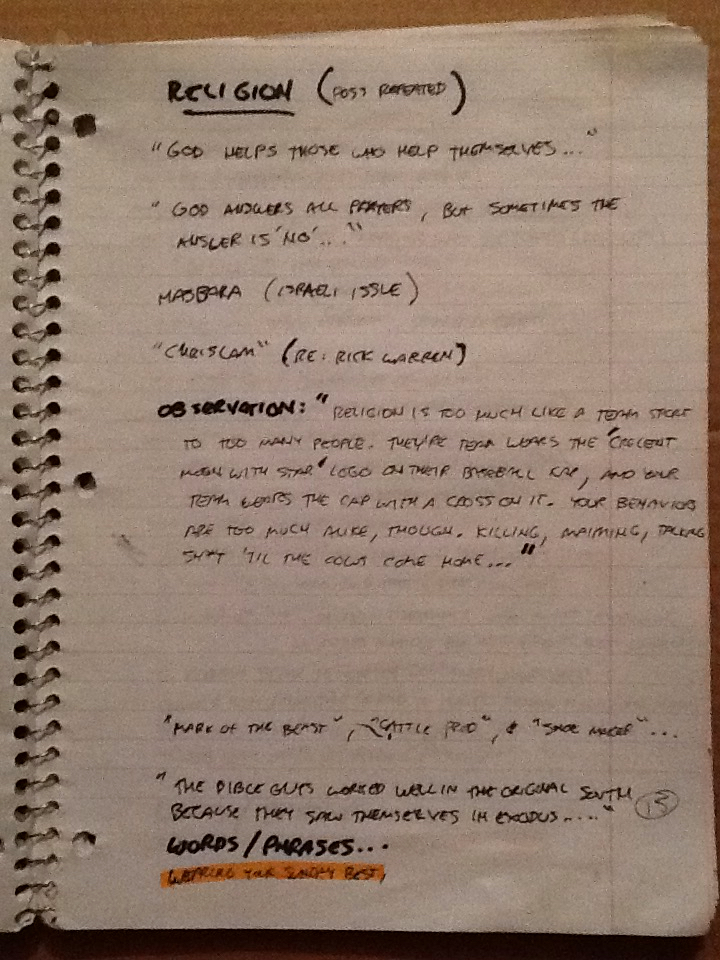 RELIGION (POSS REPEATED)
"GOD HELPS THOSE WHO HELP THEMSELVES..."
"GOD ANSWERS ALL PRAYERS, BUT SOMETIMES THE
ANSWER IS 'NO'..."
MASBARA (ISRAELI ISSUE)
"CHRISLAM" (RE: RICK WARREN)
OBSERVATION: "RELIGION IS TOO MUCH LIKE A TEAM SPORT
TO TOO MANY PEOPLE. THEY'RE TEAM WEARS THE 'CRESCENT
MOON WITH STAR' LOGO ON THEIR BASEBALL KAP, AND YOUR
TEAM WEARS THE CAP WITH A CROSS ON IT. YOUR BEHAVIORS
ARE TOO MUCH ALIKE, THOUGH. KILLING, MAIMING, TALKING
SH*T 'TIL THE COWS COME HOME..."
"MARK OF THE BEAST", "CATTLE PROD", & "SHOE MAKER"...
"THE BIBLE GUYS WORKED WELL IN THE ORIGINAL SOUTH
BECAUSE THEY SAW THEMSELVES IN EXODUS....."
13
WORDS/PHRASES...
WEARING YOUR SUNDAY BEST,